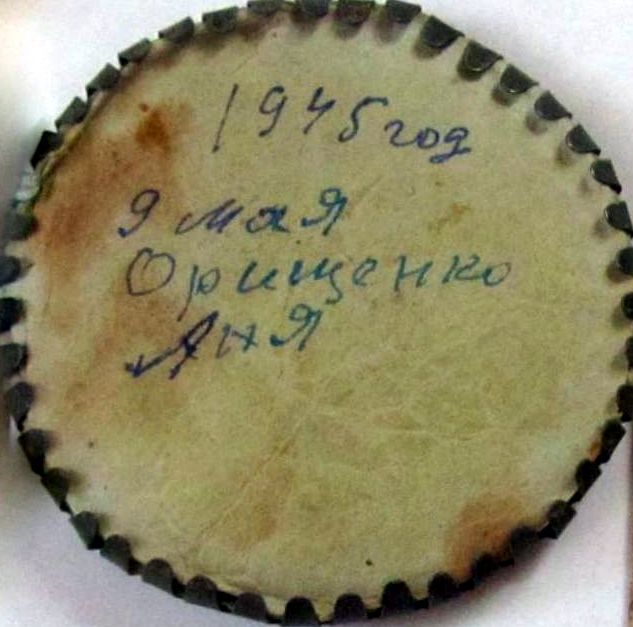 1945 год
9 мая
Орищенко
Аня